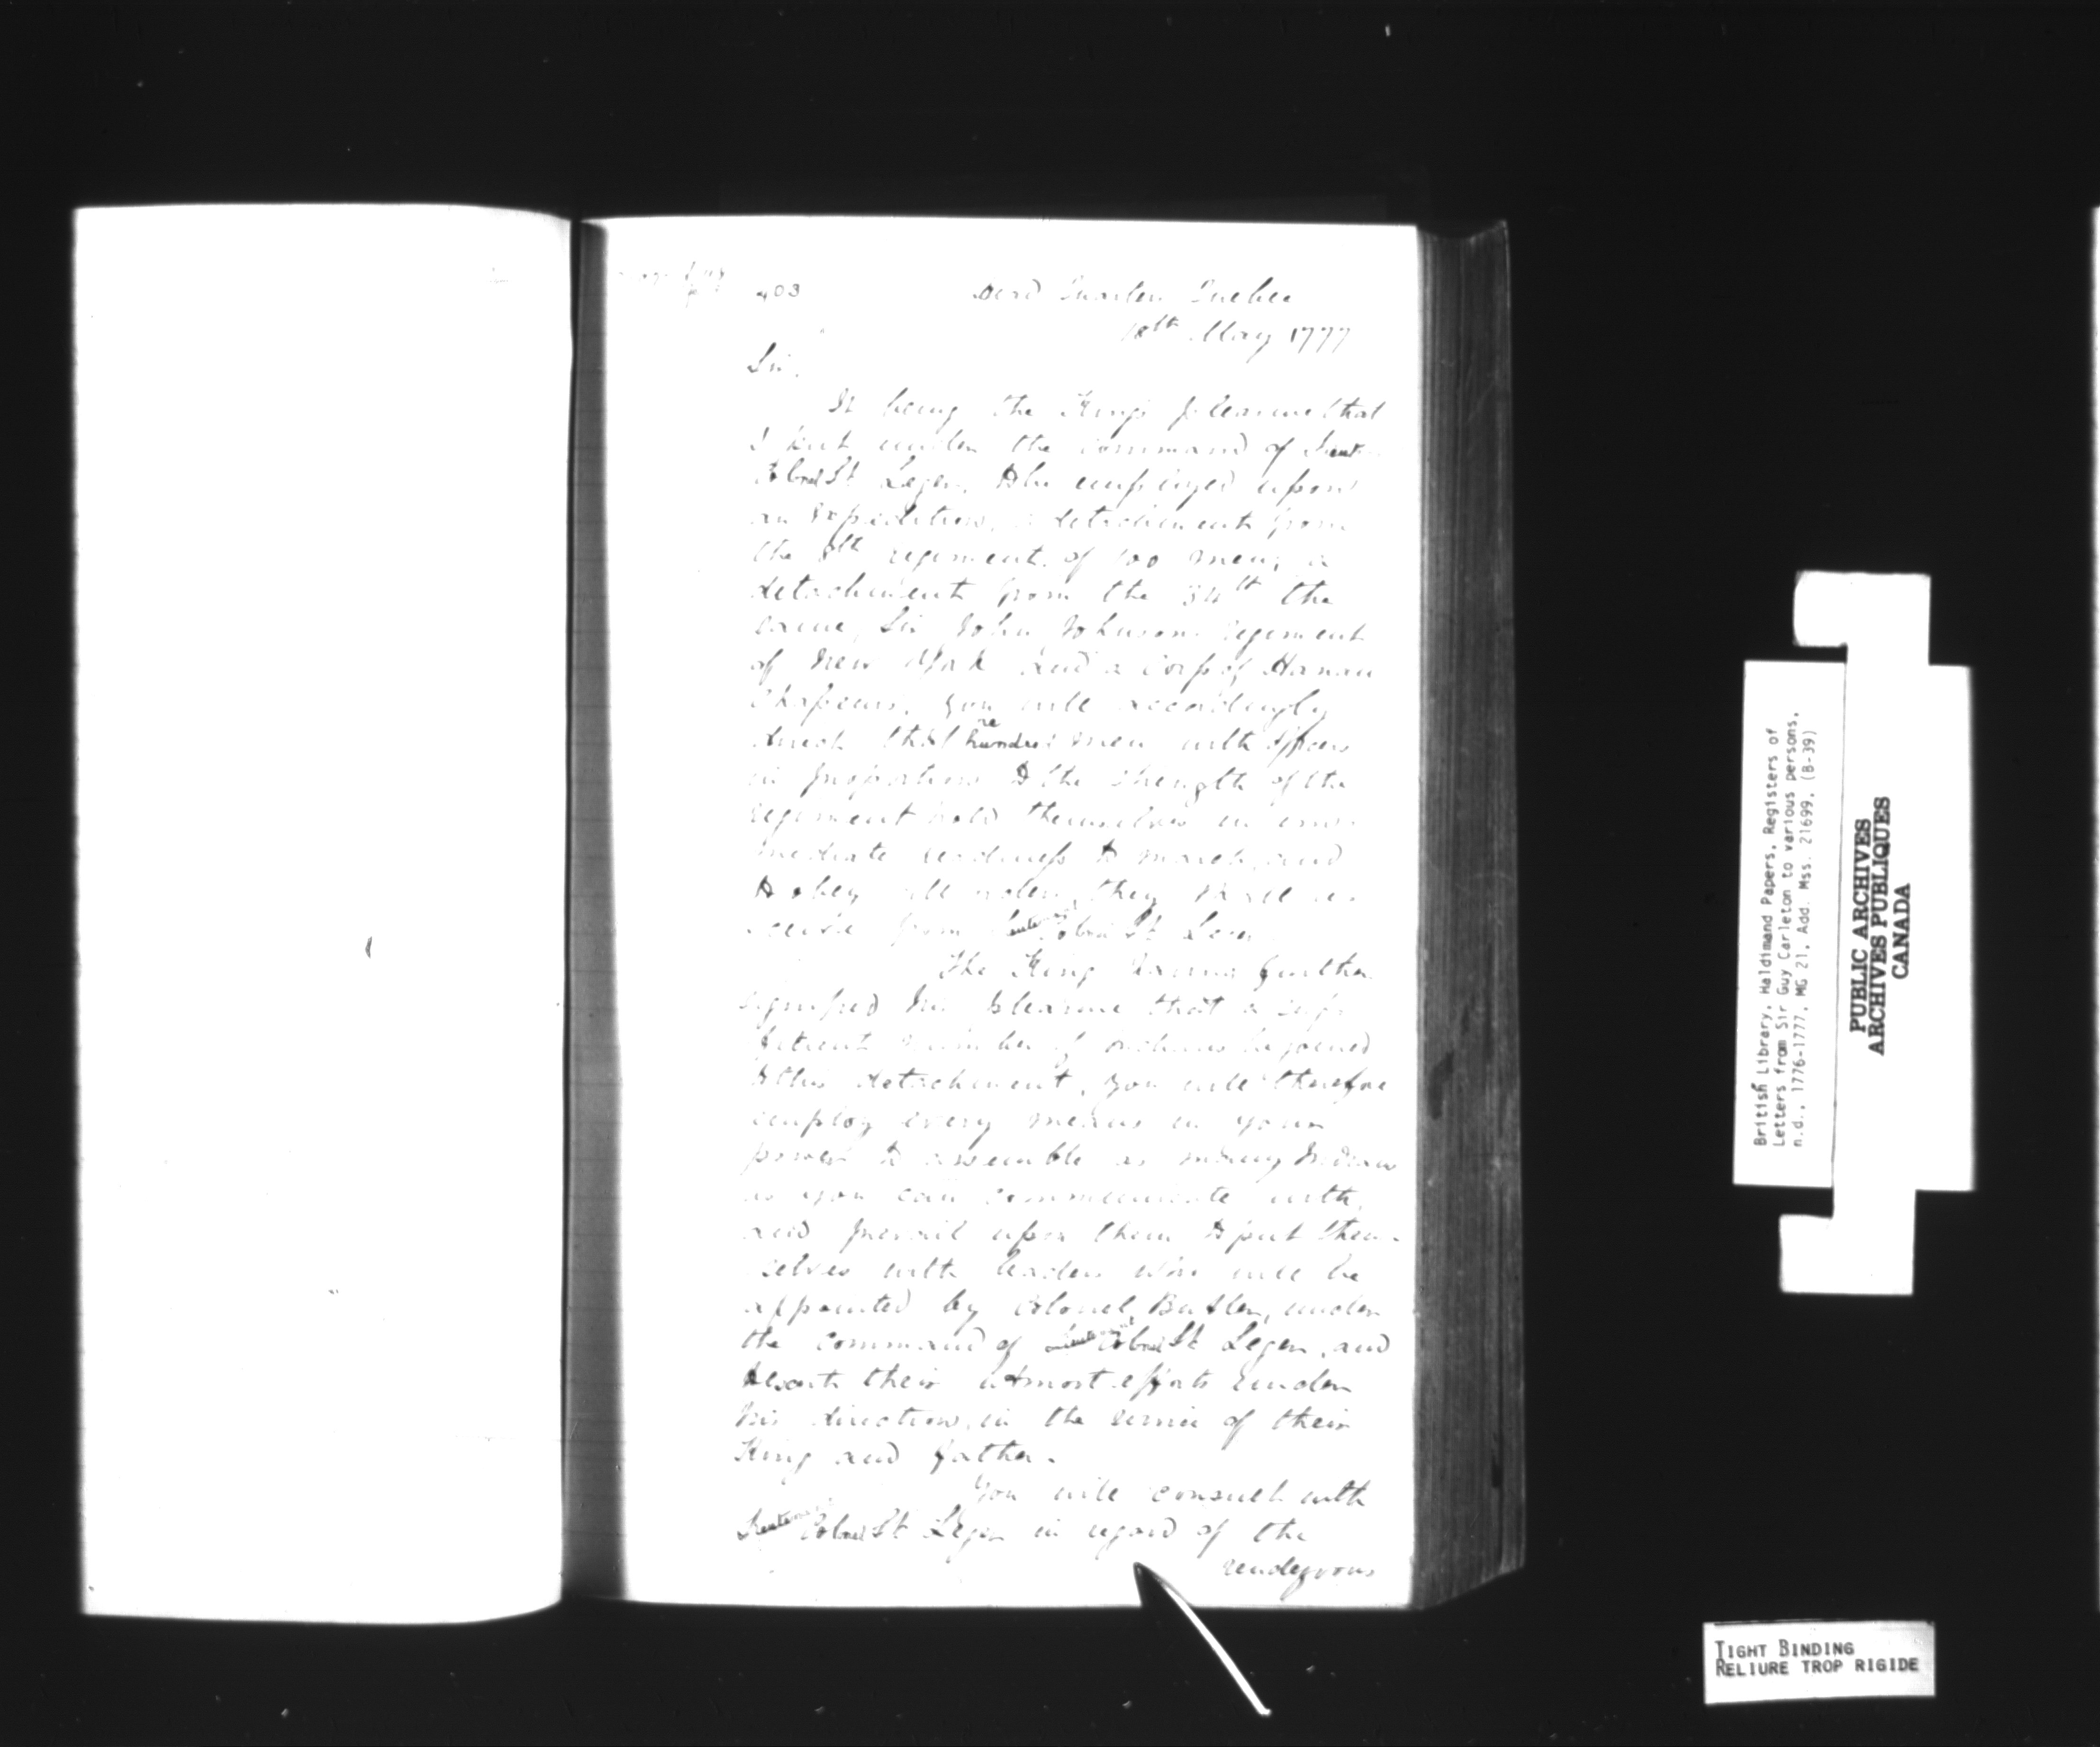 403
Head Quarters Quebec
18th May 1777
Sir,
It being the King's pleasure that
I put under the command of Lieut
Colonel St Leger, to be employed upon
an expedition, a detachment from
the 8th regiment of 100 men, a
detachment from the 34th the
same, Sir John Johnsons regiment
of New York and a Corps of Hanau
Chasseurs, you will accordingly
direct that one hundred men with officers
in proportion to the strength of the
regiment hold themselves in im-
mediate readiness to march, and
to obey all orders they shall re-
ceive from Lieutenant Colonel St Leger
The King having further
signified his pleasure that a suf-
ficient number of indians be joined
to this detachment, you will therefore
employ every means in your
power to assemble as many Indians
as you can communicate with,
and prevail upon them to put them-
selves with leaders who will be
appointed by Colonel Butler, under
the command of Lieutenant Colonel St Leger, and
to exert their utmost efforts under
his direction, in the service of their
King and father.
You will consult with
Lieutenant Colonel St Leger in regard of the
rendezvous
British Library, Haldimand Papers, Registers of
Letters from Sir Guy Carleton to various persons,
n.d., 1776-1777, MG 21, Add. Mss. 21699, (B-39)
PUBLIC ARCHIVES
ARCHIVES PUBLIQUES
CANADA
TIGHT BINDING
RELIURE TROP RIGIDE